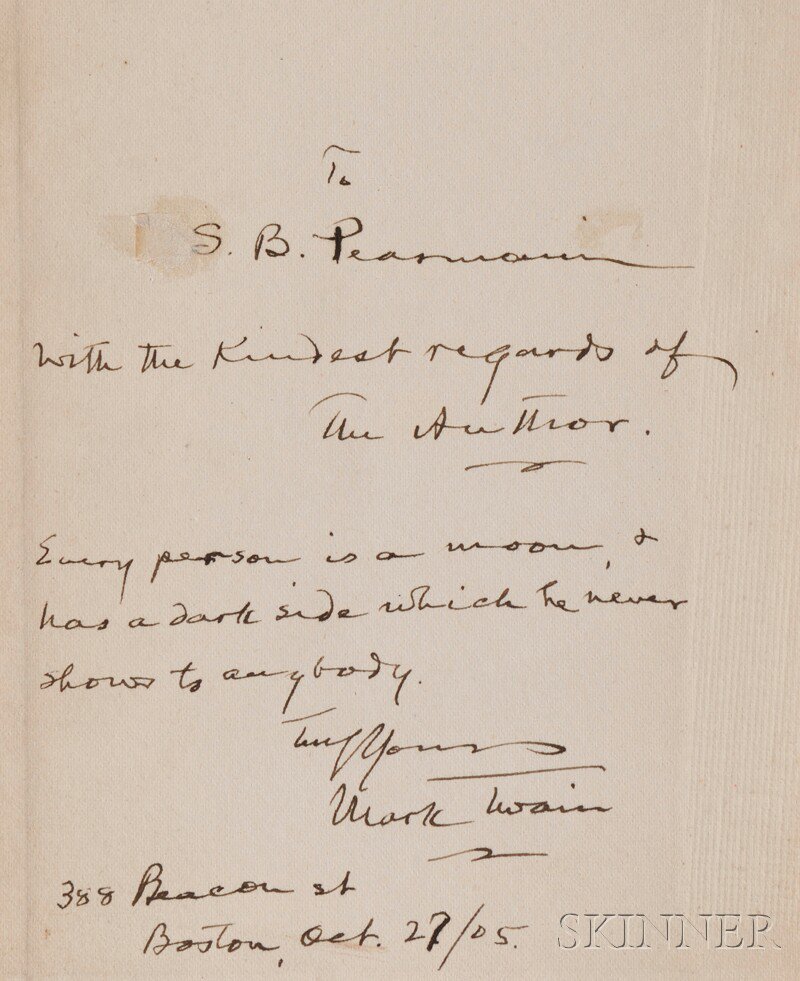 To
S. B. Pearmain
with the kindest regards of
The Author.
Every person is a moon, &
has a dark side which he never
shows to anybody.
Truly Yours
Mark Twain
388 Beacon st
Boston, Oct. 27/05.
SKINNER